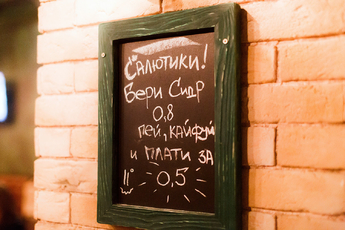 Салютики!
Бери Сидр
0,8
пей, кайфуй
и плати за
0,5